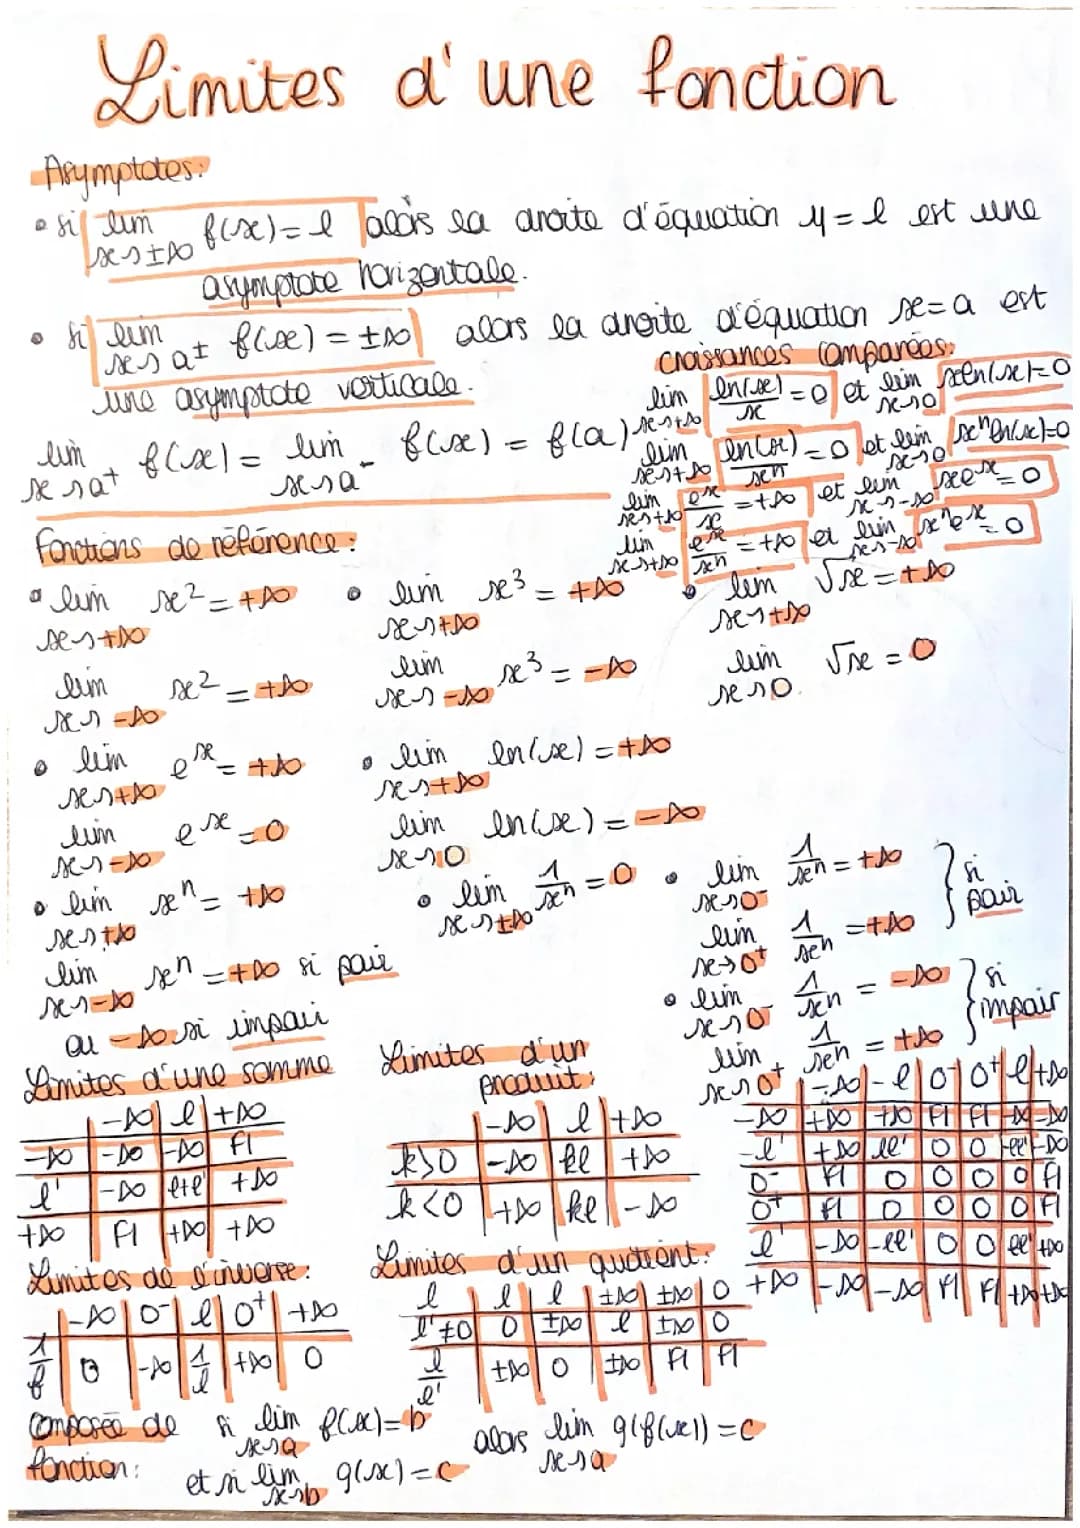 Limites d'une fonction
Asymptotes:
• si lim x→±∞ f(x) = l alors la droite d'équation y = l est une
asymptote horizontale.
• si lim x→a± f(x) = ±∞ alors la droite d'équation x = a est
une asymptote verticale.
lim x→a+ f(x) = lim x→a- f(x) = f(a)
croissances comparées:
lim x→+∞ ln(x)/x = 0 et lim x→0 xln(x) = 0
lim x→+∞ ln(x)/xⁿ = 0 et lim x→0 xⁿln(x) = 0
lim x→+∞ eˣ/x = +∞ et lim x→-∞ xeˣ = 0
lim x→+∞ eˣ/xⁿ = +∞ et lim x→-∞ xⁿeˣ = 0
Fonctions de référence:
• lim x→+∞ x² = +∞
lim x→-∞ x² = +∞
• lim x→+∞ x³ = +∞
lim x→-∞ x³ = -∞
• lim x→+∞ √x = +∞
lim x→0 √x = 0
• lim x→+∞ eˣ = +∞
lim x→-∞ eˣ = 0
• lim x→+∞ ln(x) = +∞
lim x→0 ln(x) = -∞
• lim x→+∞ xⁿ = +∞
lim x→-∞ xⁿ = +∞ si pair
ou -∞ si impair
• lim x→±∞ 1/xⁿ = 0
• lim x→0- 1/xⁿ = +∞
lim x→0+ 1/xⁿ = +∞
} si pair
• lim x→0- 1/xⁿ = -∞
lim x→0+ 1/xⁿ = +∞
} si impair
Limites d'une somme
-∞ | l | +∞
-∞ | -∞ | -∞ | FI
l' | -∞ | l+l' | +∞
+∞ | FI | +∞ | +∞
Limites d'un
produit:
-∞ | l | +∞
k>0 | -∞ | kl | +∞
k<0 | +∞ | kl | -∞
-∞ | -l | 0- | 0+ | l | +∞
-∞ | +∞ | +∞ | FI | FI | -∞ | -∞
-l' | +∞ | ll' | 0 | 0 | -ll' | -∞
0- | FI | 0 | 0 | 0 | 0 | FI
0+ | FI | 0 | 0 | 0 | 0 | FI
l' | -∞ | -ll' | 0 | 0 | ll' | +∞
+∞ | -∞ | -∞ | FI | FI | +∞ | +∞
Limites de l'inverse:
-∞ | 0- | l | 0+ | +∞
1/f | 0 | -∞ | 1/l | +∞ | 0
Limites d'un quotient:
l | l | l | ±∞ | ±∞ | 0
l'≠0 | 0 | ±∞ | l | ±∞ | 0
l/l' | ±∞ | 0 | ±∞ | FI | FI
Composée de
fonction:
si lim x→a f(x) = b
et si lim x→b g(x) = c
alors lim x→a g(f(x)) = c